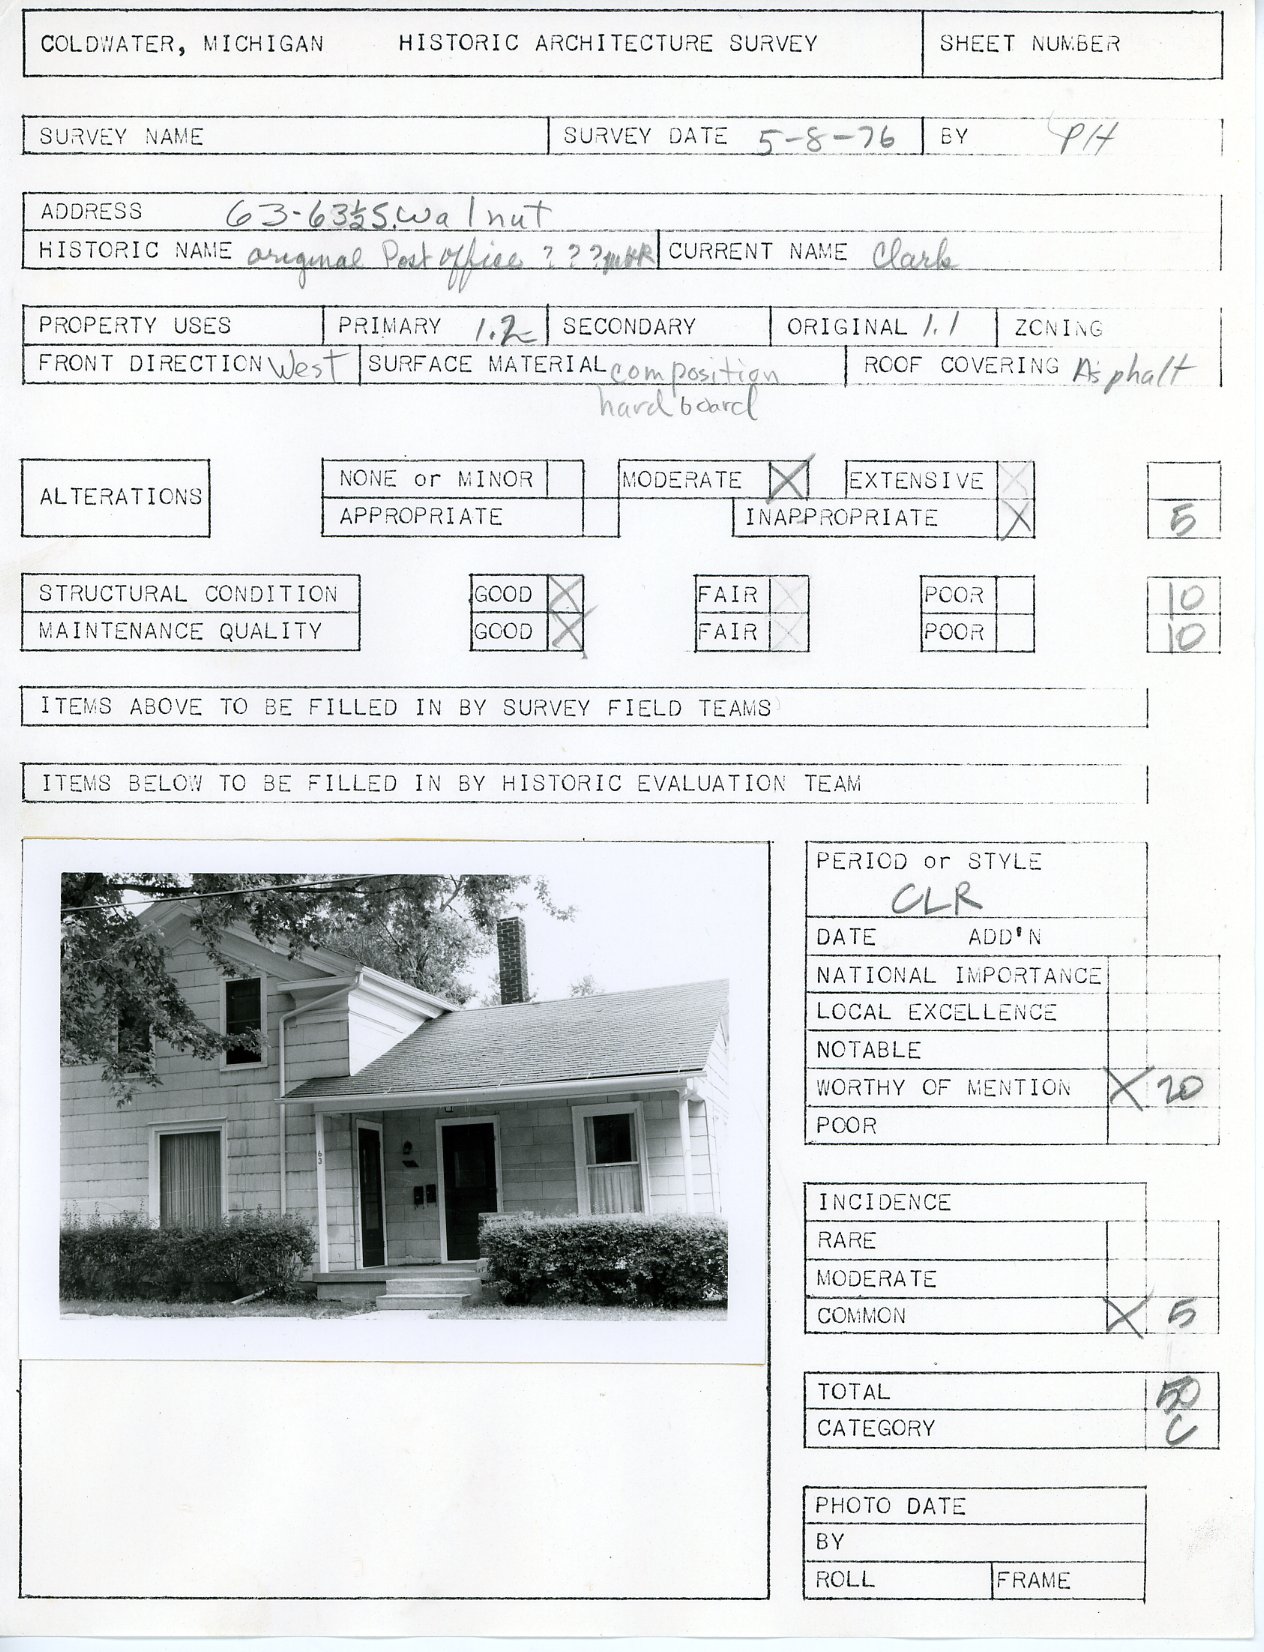 COLDWATER, MICHIGAN HISTORIC ARCHITECTURE SURVEY SHEET NUMBER
SURVEY NAME SURVEY DATE 5-8-76 BY PH
ADDRESS 63-63½ S. Walnut
HISTORIC NAME original Post office ? ? ? CURRENT NAME Clark
PROPERTY USES PRIMARY 1.2 SECONDARY ORIGINAL 1.1 ZONING
FRONT DIRECTION West SURFACE MATERIAL composition ROOF COVERING Asphalt
hardboard
ALTERATIONS NONE or MINOR MODERATE X EXTENSIVE X
APPROPRIATE INAPPROPRIATE X 5
STRUCTURAL CONDITION GOOD X FAIR X POOR 10
MAINTENANCE QUALITY GOOD X FAIR X POOR 10
ITEMS ABOVE TO BE FILLED IN BY SURVEY FIELD TEAMS
ITEMS BELOW TO BE FILLED IN BY HISTORIC EVALUATION TEAM
63
PERIOD or STYLE
CLR
DATE ADD'N
NATIONAL IMPORTANCE
LOCAL EXCELLENCE
NOTABLE
WORTHY OF MENTION X 20
POOR
INCIDENCE
RARE
MODERATE
COMMON X 5
TOTAL 50
CATEGORY C
PHOTO DATE
BY
ROLL FRAME